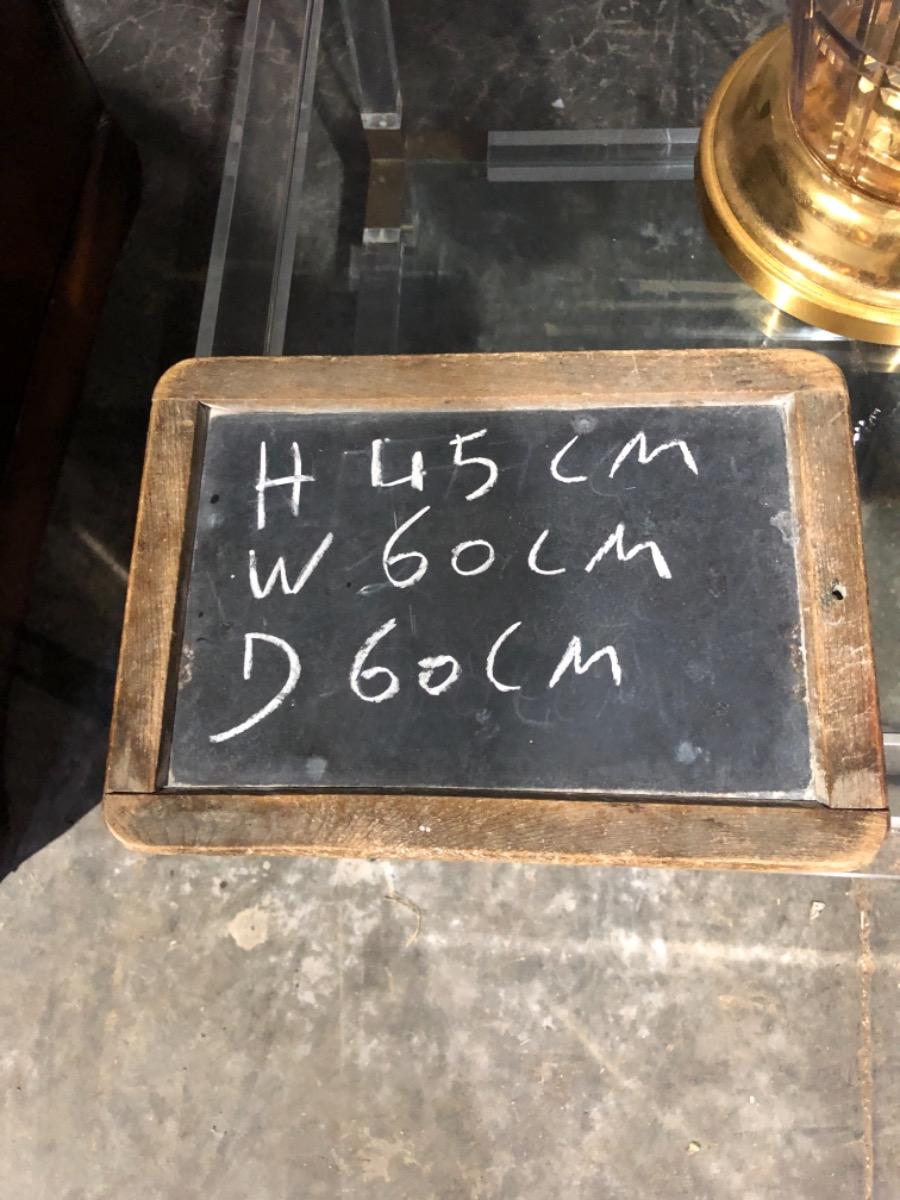 H 45 CM
W 60CM
D 60CM